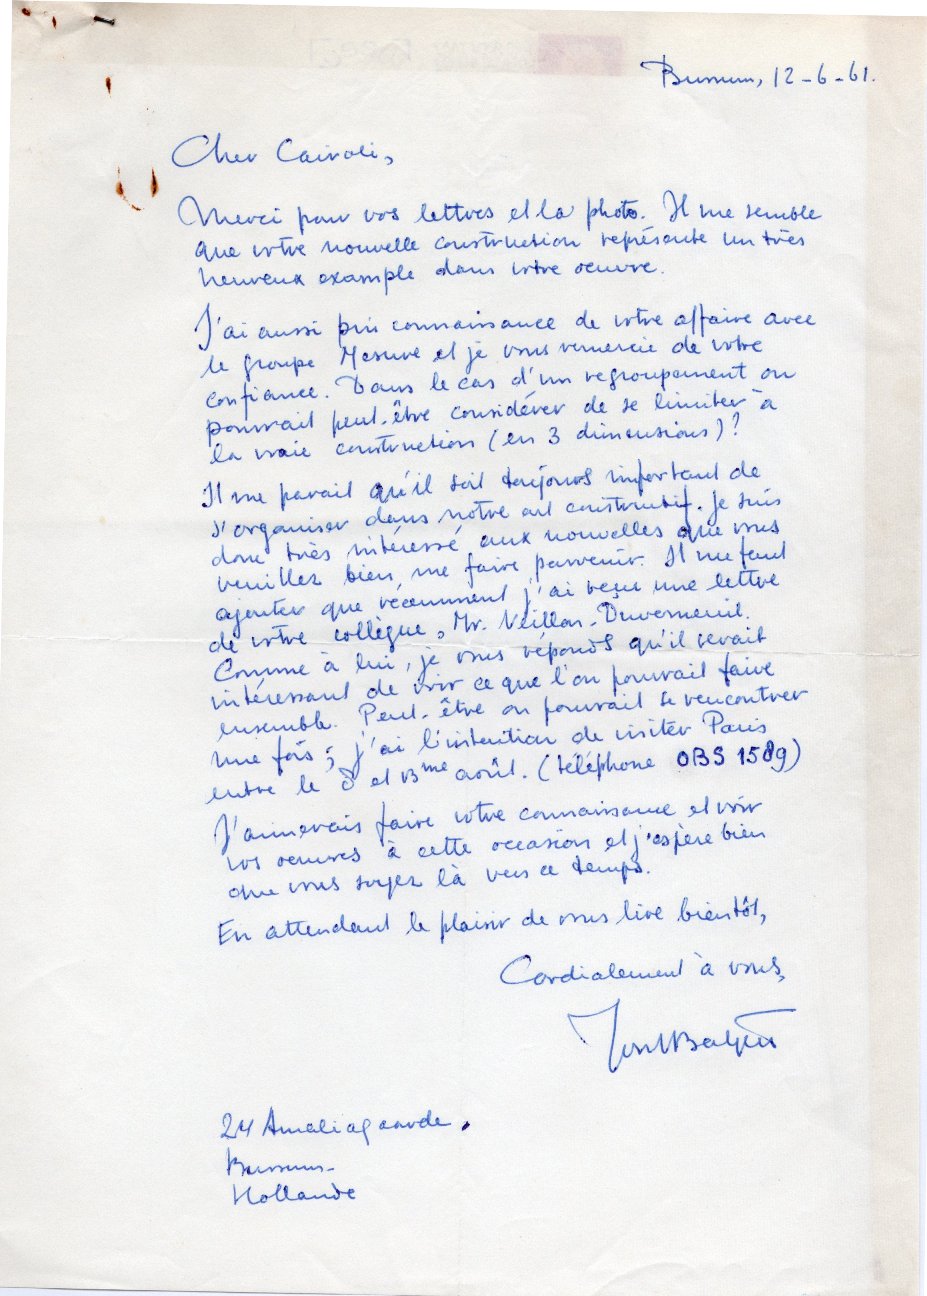 Bussum, 12-6-61.
Cher Cairoli,
Merci pour vos lettres et la photo. Il me semble
que votre nouvelle construction représente un très
heureux example dans votre oeuvre.
J'ai aussi pris connaissance de votre affaire avec
le groupe Mesure et je vous remercie de votre
confiance. Dans le cas d'un regroupement on
pourrait peut-être considérer de se limiter à
la vraie construction (en 3 dimensions)?
Il me parait qu'il soit toujours important de
s'organiser dans notre art constructif. Je suis
donc très intéressé aux nouvelles que vous
veuillez bien me faire parvenir. Il me faut
ajouter que récemment j'ai reçu une lettre
de votre collègue, Mr. Veillon-Duverneuil.
Comme à lui, je vous réponds qu'il serait
intéressant de voir ce que l'on pourrait faire
ensemble. Peut-être on pourrait se rencontrer
une fois; j'ai l'intention de visiter Paris
entre le 8 et 13me août. (téléphone OBS 1589)
J'aimerais faire votre connaissance et voir
vos oeuvres à cette occasion et j'espère bien
que vous soyez là vers ce temps.
En attendant le plaisir de vous lire bientôt,
Cordialement à vous,
Joost Baljeu
24 Ameliagaarde,
Bussum-
Hollande